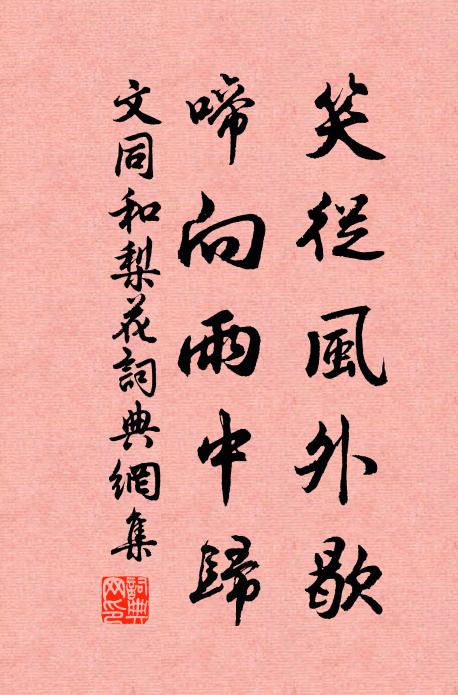 笑從風外歇
啼向雨中歸
文同和梨花詞典網集
詞典網印